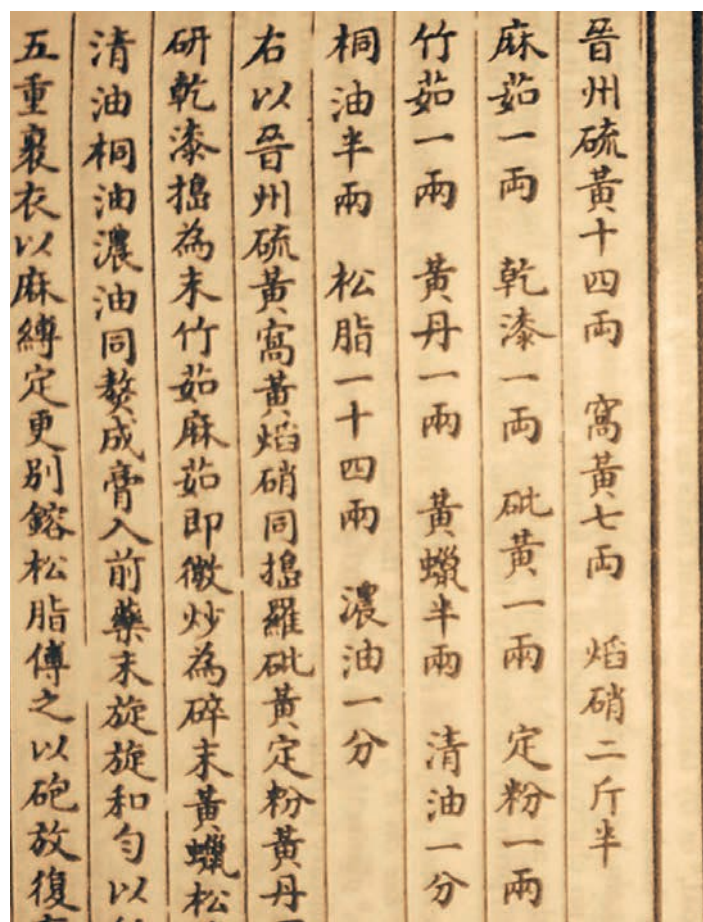 晉州硫黃十四兩　窩黃七兩　焰硝二斤半
麻茹一兩　乾漆一兩　砒黃一兩　定粉一兩
竹茹一兩　黃丹一兩　黃蠟半兩　清油一分
桐油半兩　松脂一十四兩　濃油一分
右以晉州硫黃窩黃焰硝同搗羅砒黃定粉黃丹
研乾漆搗為末竹茹麻茹即微炒為碎末黃蠟松
清油桐油濃油同熬成膏入前藥末旋旋和勻以
五重裹衣以麻縛定更別鎔松脂傅之以砲放復